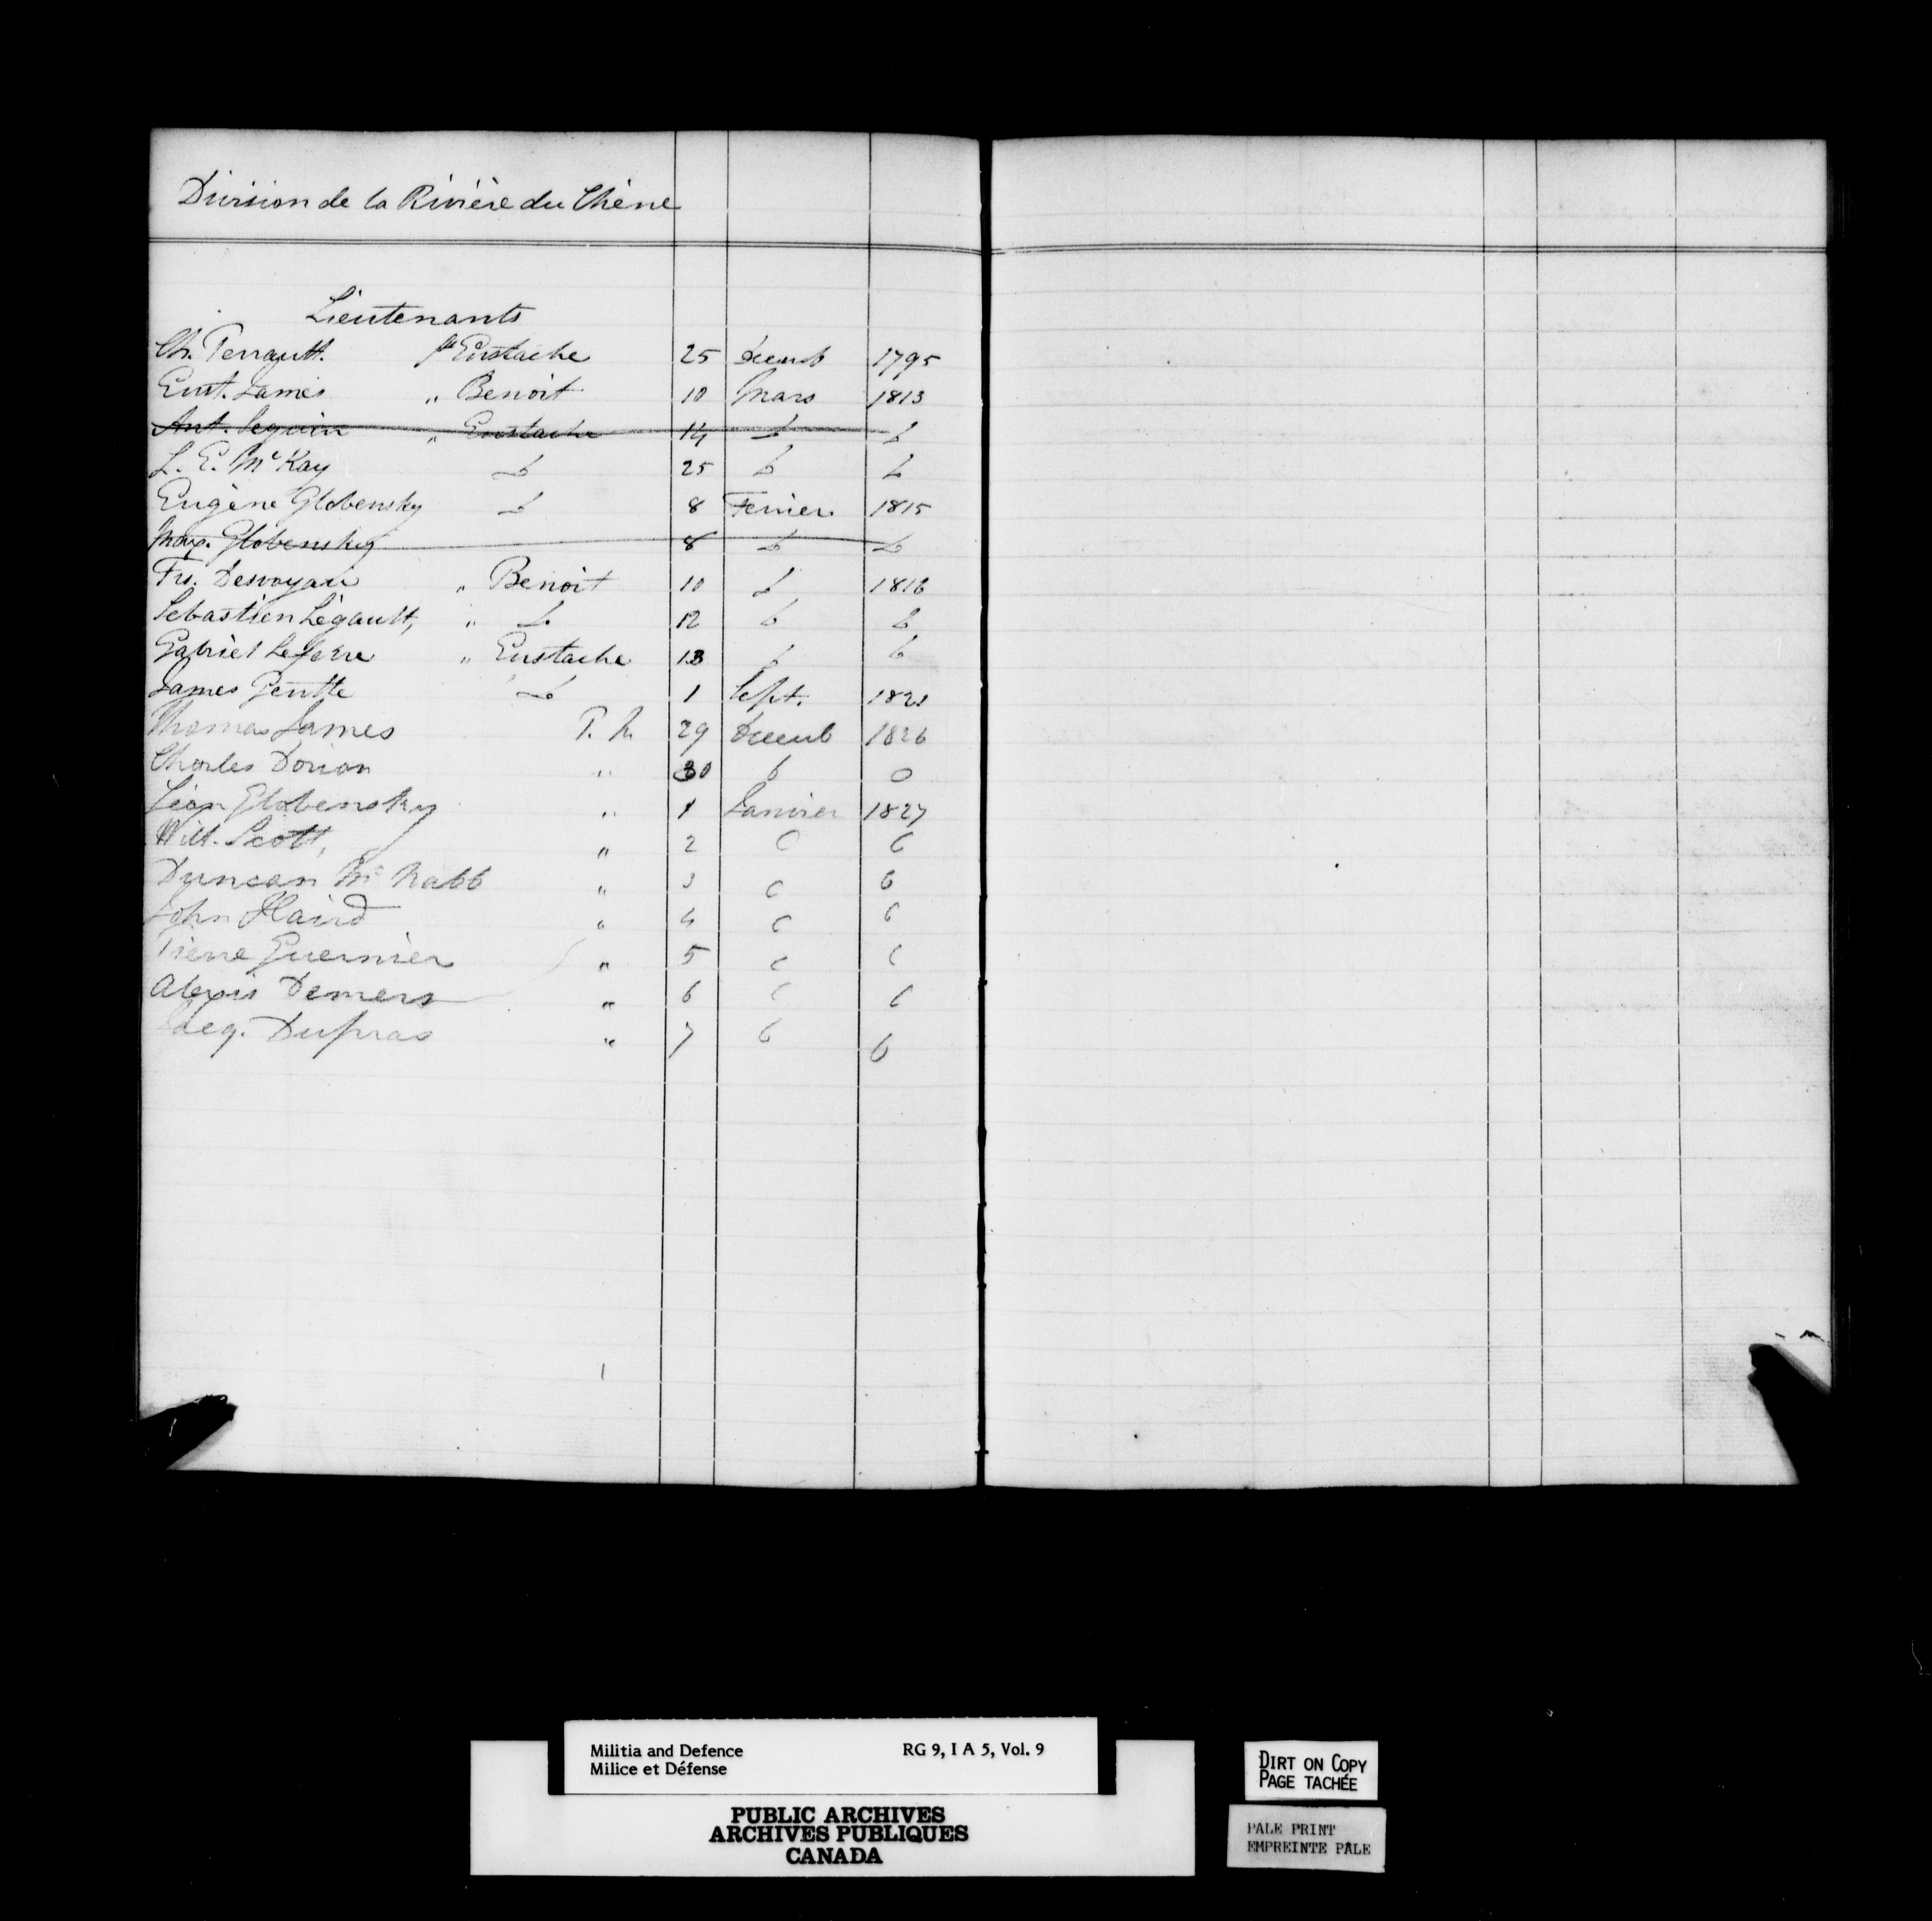 Division de la Rivière du Chêne
Lieutenants
Ch. Perrault. Eustache 25 Decemb 1795
Eust. James „ Benoit 10 Mars 1813
Ant. Seguin „ Eustache 14 do do
L. E. McKay do 25 do do
Eugène Globensky do 8 Fevrier 1815
Max. Globensky 8 do do
Frs. Desvoyau „ Benoit 10 do 1816
Sebastien Légault, „ do 12 do do
Gabriel Lefevre „ Eustache 13 do do
James do 1 Sept. 1821
Thomas James P. N. 29 Decemb 1826
Charles Dorion „ 30
Léon Globensky „ 1 Janvier 1827
Will. Scott, „ 2
Duncan Mc Nabb „ 3
John „ 4
Guernier „ 5
Alexis Demers „ 6
Jacq. Dupras „ 7
Militia and Defence RG 9, I A 5, Vol. 9
Milice et Défense
PUBLIC ARCHIVES
ARCHIVES PUBLIQUES
CANADA
DIRT ON COPY
PAGE TACHÉE
PALE PRINT
EMPREINTE PÂLE